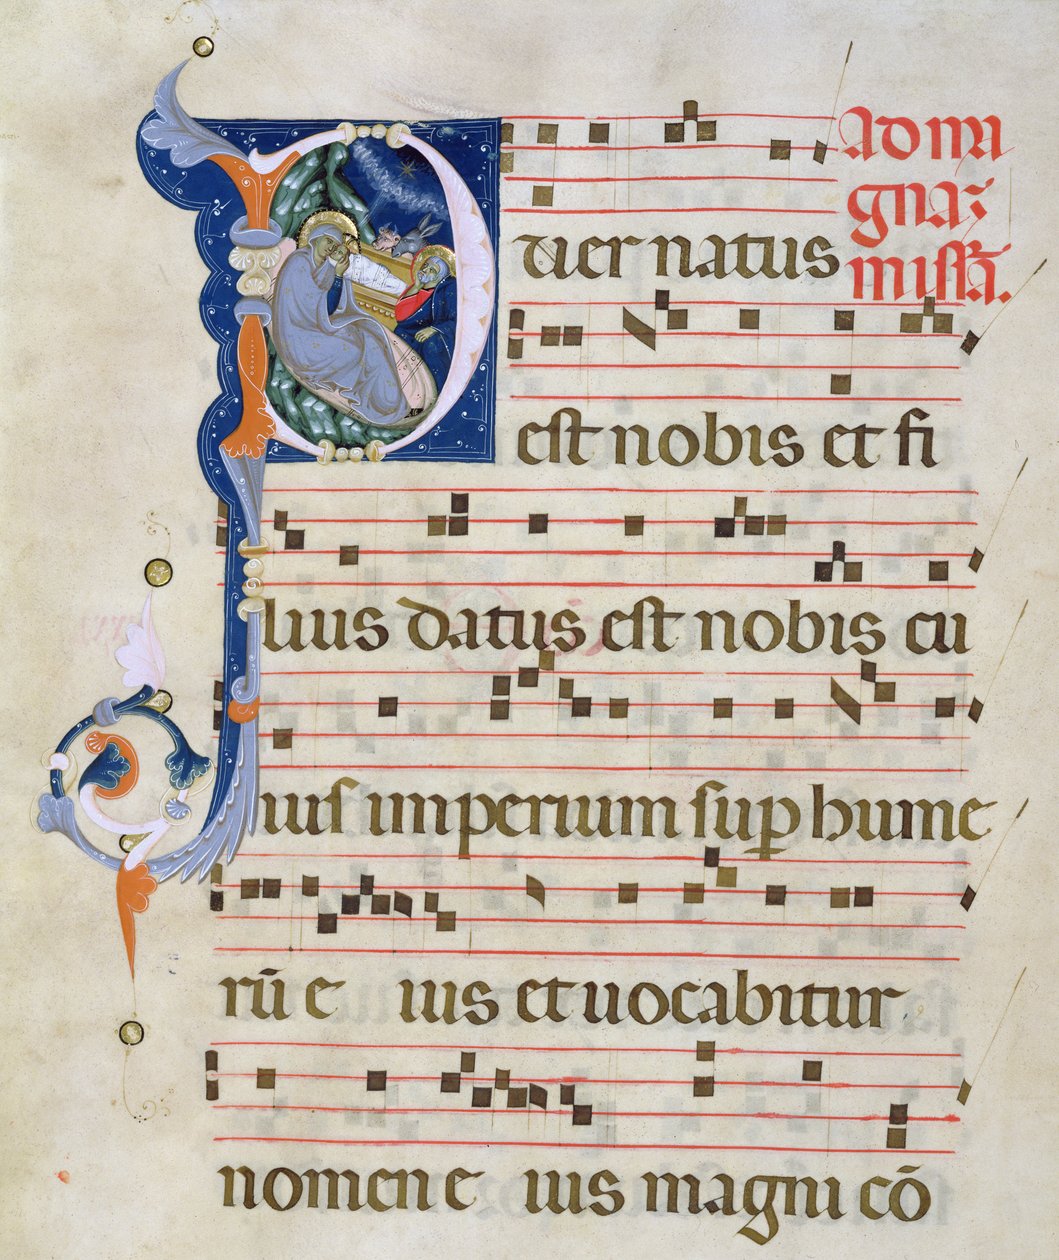 Ad ma
gnaʒ
missā.
Puer natus
est nobis et fi
lius datus est nobis cu
ius imperium sup hume
rū e ius et uocabitur
nomen e ius magni cō